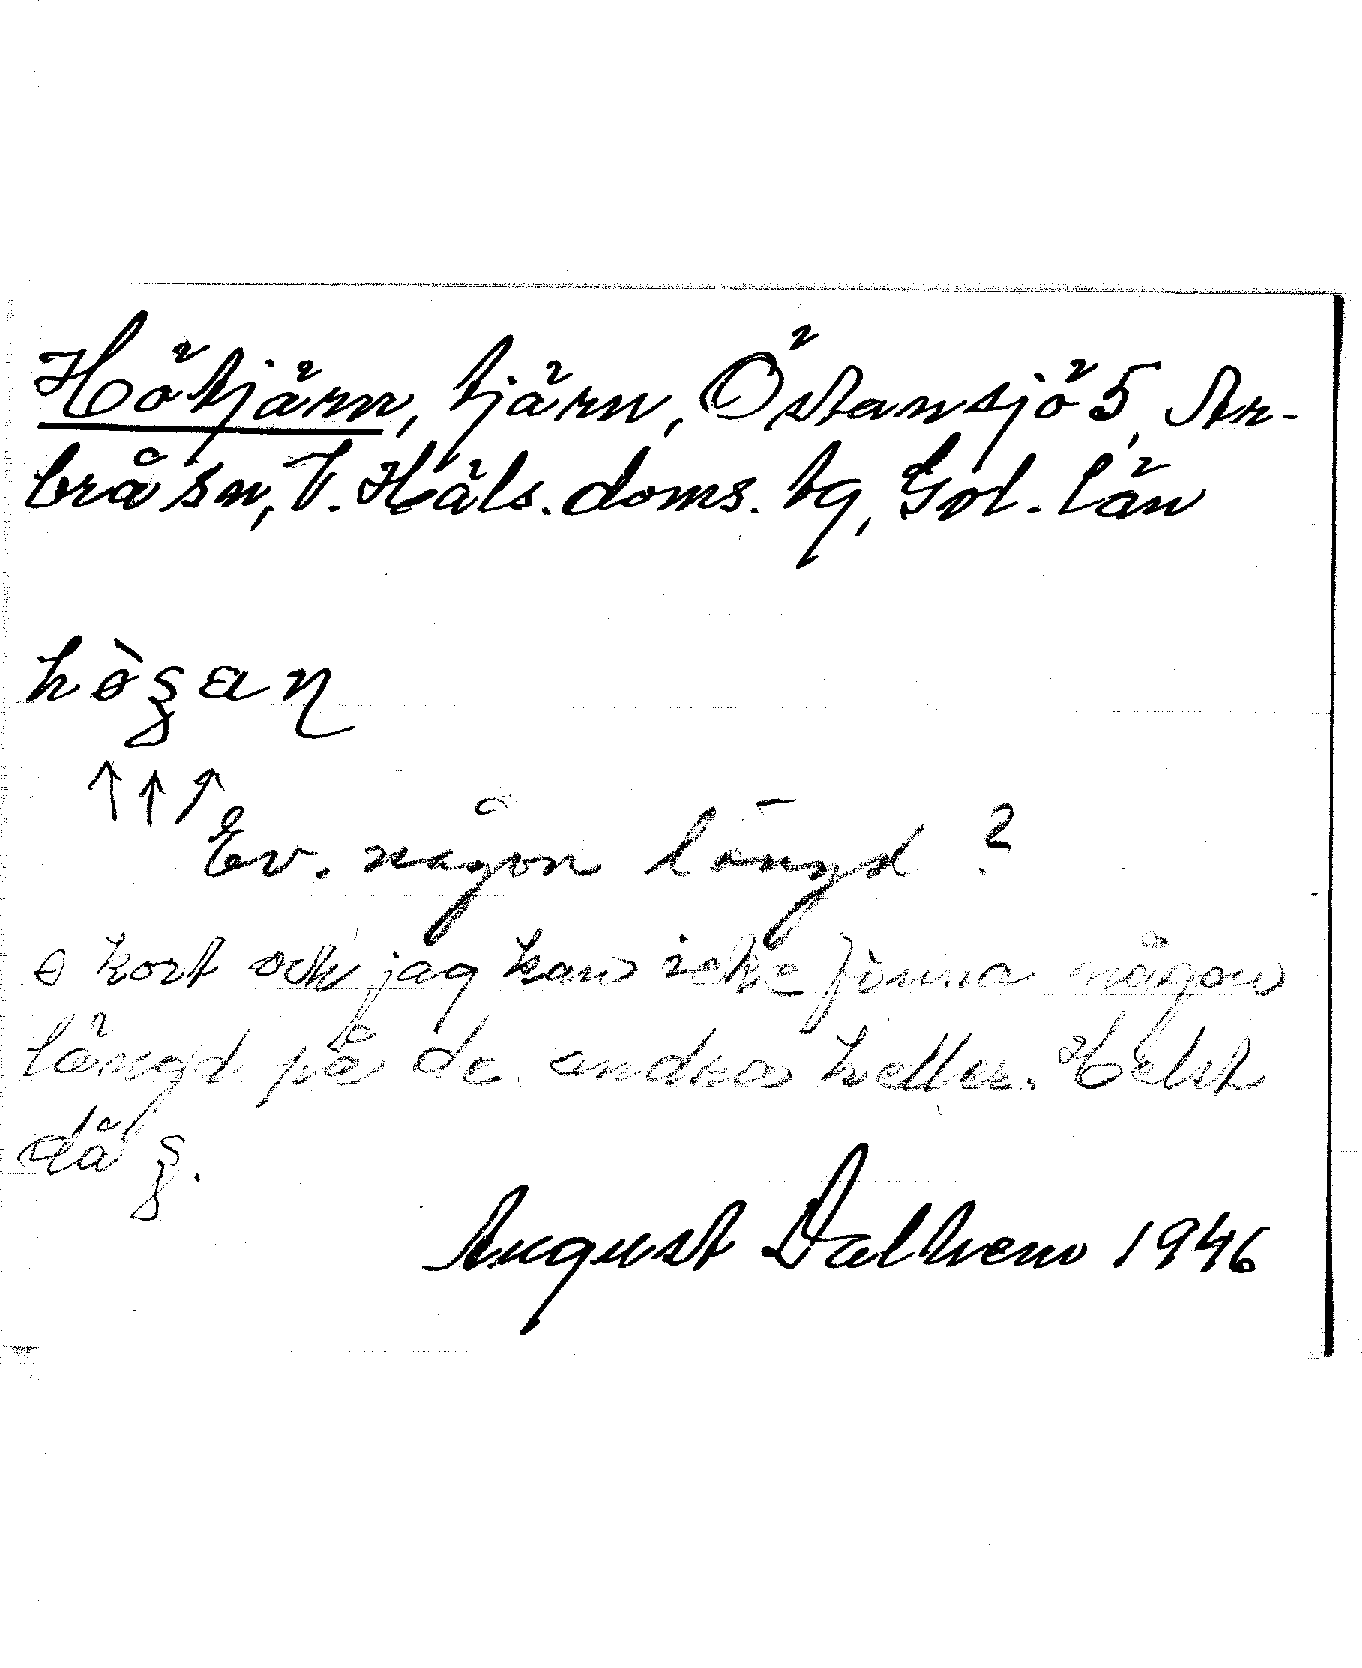 Hötjärn, tjärn, Östansjö 5, Ar-
brå sn, V. Häls. doms. tg, Gvl. län
↑↑↑
Ev. någon längd?
kort och jag kan icke finna någon
längd på de andra heller. Helst
då
August Dalhem 1946